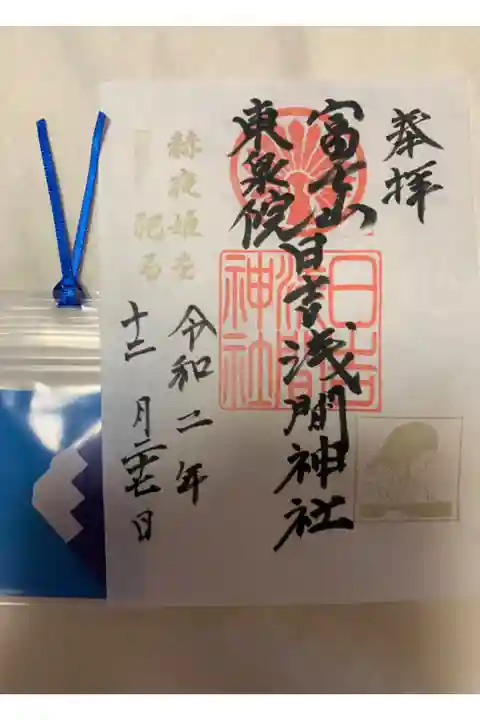 奉拝
富士山日吉浅間神社
東泉院
日吉浅間神社
赫夜姫を
祀る
令和二年
十二月二十七日